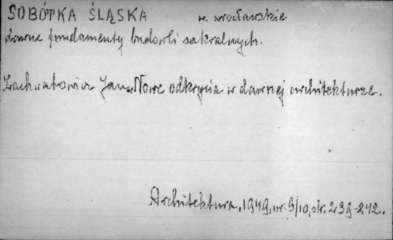 SOBÓTKA ŚLĄSKA w. wrocławskie
dawne fundamenty budowli sakralnych.
Zachwatowicz Jan, Nowe odkrycia w dawnej architekturze.
Architektura, 1949, nr. 9/10, str. 239-242.